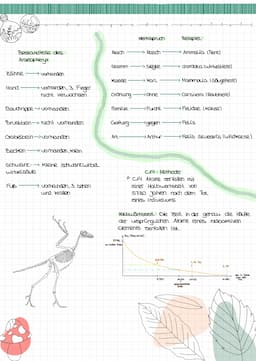 Besonderheiten des
Archaeopteryx
Zähne → vorhanden
Hand → vorhanden, 3 Finger
nicht verwachsen
Bauchrippen → vorhanden
Brustbein → nicht vorhanden
Gabelbein → vorhanden
Becken → vorhanden, klein
Schwanz → kleine Schwanzwirbel
wirbelsäule
Fuß → vorhanden, 3 Zehen
und Krallen
Merkspruch Beispiel
Reich → Reich → Animalia (Tiere)
Stamm → Chordata (Wirbeltiere)
Klasse → Mammalia (Säugetiere)
Ordnung → ohne → Carnivora (Raubtiere)
Familie → Flucht → Felidae (Katzen)
Gattung → gegen → Felis
Art → Felis silvestris (Wildkatze)
C-14 Methode
C-14 Atome zerfallen mit
einer Halbwertszeit von
5730 Jahren nach dem Tod
eines Individuums
Halbwertszeit: Die Zeit in der genau die Hälfte
der ursprünglichen Atome eines radioaktiven
Elements zerfallen ist.